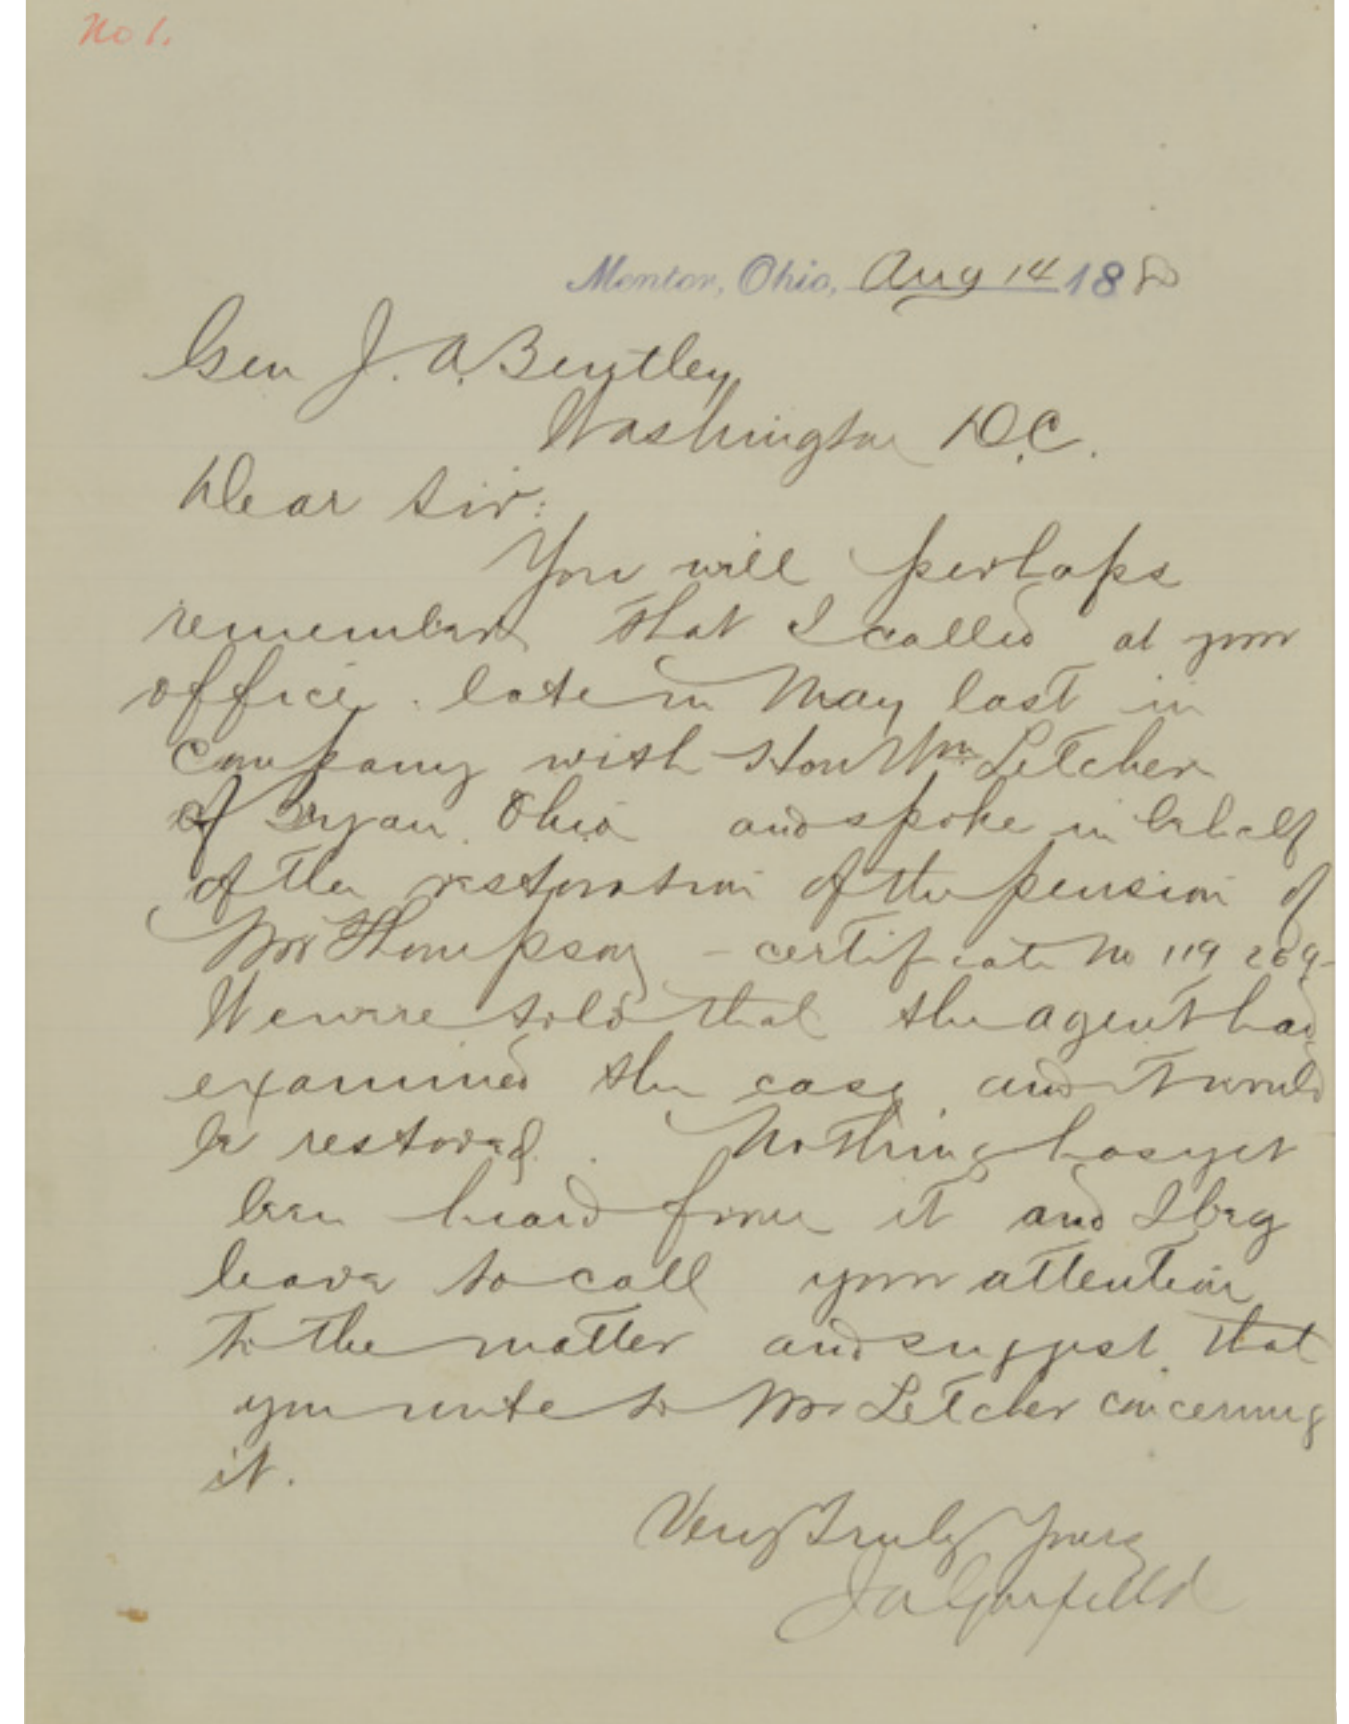 No 1.
Mentor, Ohio, Aug 14 1880
Gen J. A. Bentley,
Washington D.C.
Dear Sir:
You will perhaps
remember that I called at your
office late in May last in
company with Hon Wm Letcher
of Bryan Ohio and spoke in behalf
of the restoration of the pension of
Mr Thompson – certificate No 119 269-
We were told that the agent had
examined the case and it would
be restored. Nothing has yet
been heard from it and I beg
leave to call your attention
to the matter and suggest that
you write to Mr Letcher concerning
it.
Very Truly Yours
J A Garfield